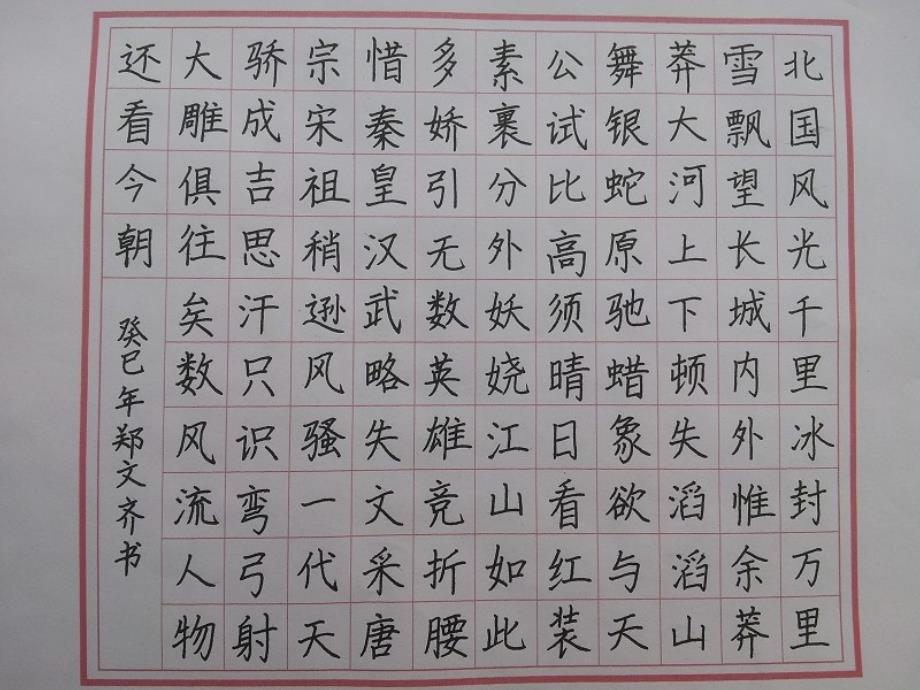 北国风光千里冰封万里
雪飘望长城内外惟余莽
莽大河上下顿失滔滔山
舞银蛇原驰蜡象欲与天
公试比高须晴日看红装
素裹分外妖娆江山如此
多娇引无数英雄竞折腰
惜秦皇汉武略失文采唐
宗宋祖稍逊风骚一代天
骄成吉思汗只识弯弓射
大雕俱往矣数风流人物
还看今朝
癸巳年郑文齐书